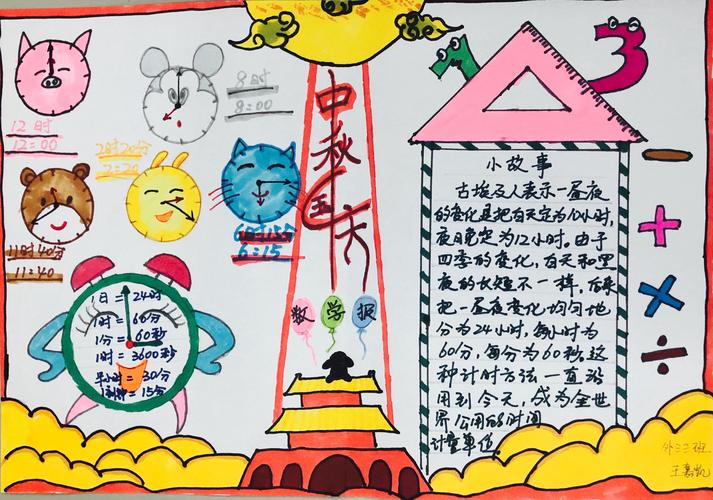 12时
12=00
8时
8:00
2时20分
2=20
11时40分
11=40
6时15分
6=15
中秋国庆
数学报
1日=24时
1时=60分
1分=60秒
1时=3600秒
半小时=30分
1刻钟=15分
7
3
小故事
古埃及人表示一昼夜
的变化是把白天定为10小时,
夜晚定为12小时。由于
四季的变化,白天和黑
夜的长短不一样,后来
把一昼夜变化均匀地
分为24小时,每小时为
60分,每分为60秒。这
种计时方法一直沿
用到今天,成为全世
界公用的时间
计量单位
− + × ÷
三班